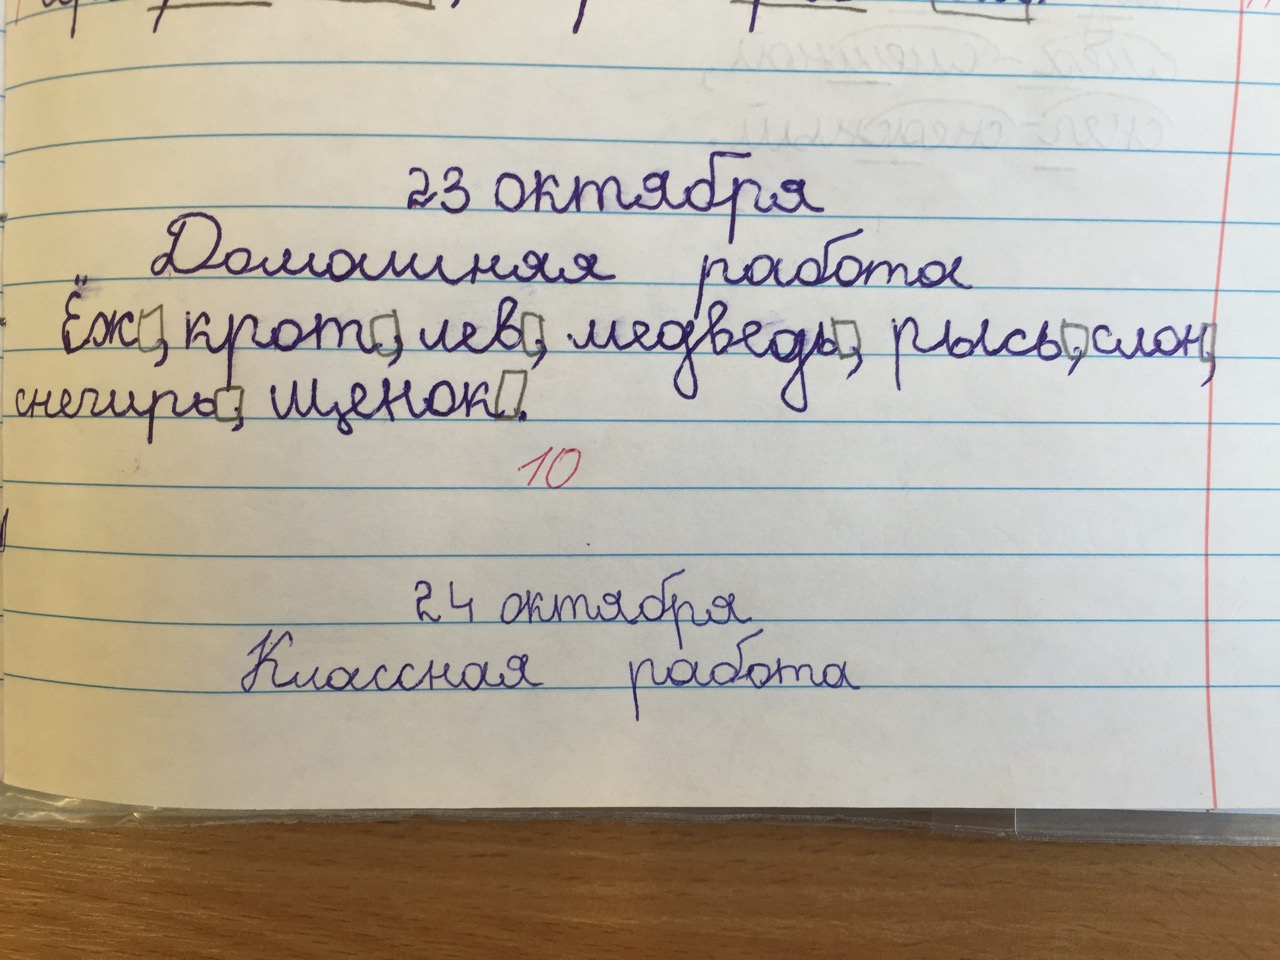 23 октября
Домашняя работа
Ёж, крот, лев, медведь, рысь, слон,
снегирь, щенок.
10
24 октября
Классная работа